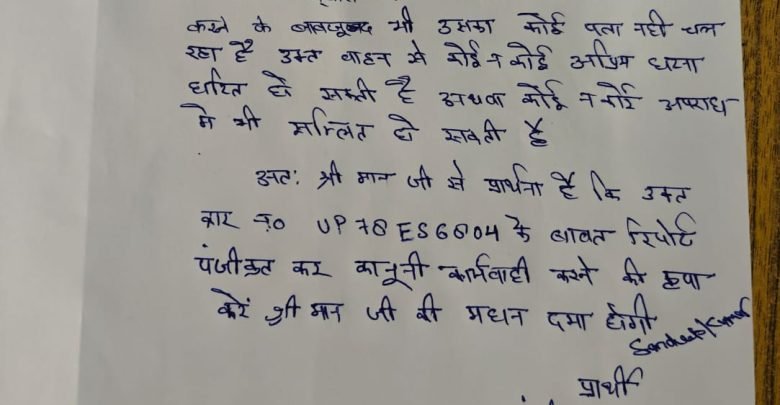 करने के बावजूद भी उसका कोई पता नही चल
रहा है उक्त वाहन से कोई न कोई अप्रिय घटना
घटित हो सकती है अथवा कोई न कोई अपराध
मे भी सम्लित हो सकती है
अतः श्री मान जी से प्रार्थना है कि उक्त
कार न० UP 78 ES 6604 के बावत रिपोर्ट
पंजीकृत कर कानूनी कार्यवाही करने की कृपा
करें श्री मान जी की महान दया होगी
Sandeep Kumar
प्रार्थी